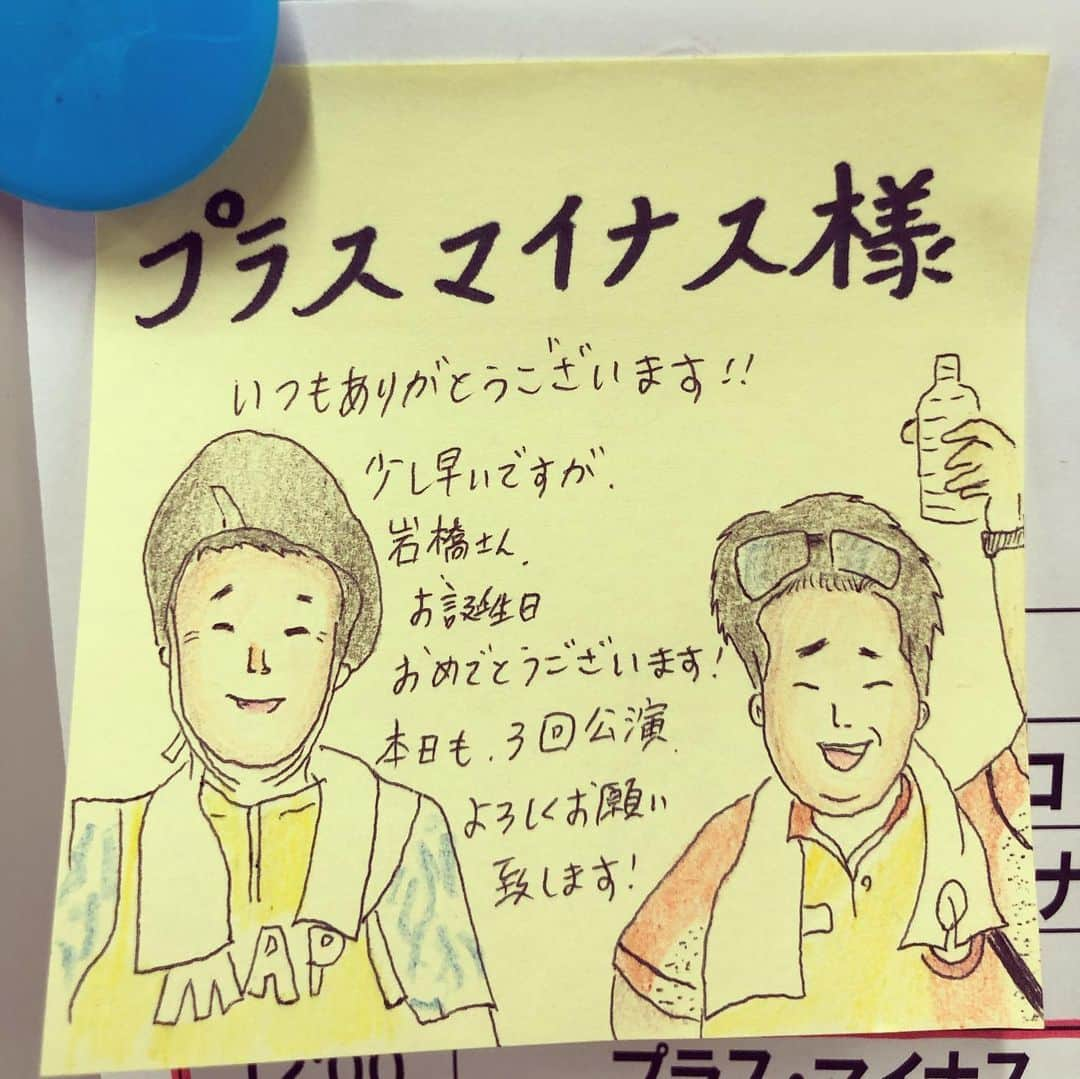 プラスマイナス様
いつもありがとうございます!!
少し早いですが、
岩橋さん、
お誕生日
おめでとうございます!
本日も、3回公演、
よろしくお願い
致します!
MAP
コ
ナ
12:00
プラス・マイナス